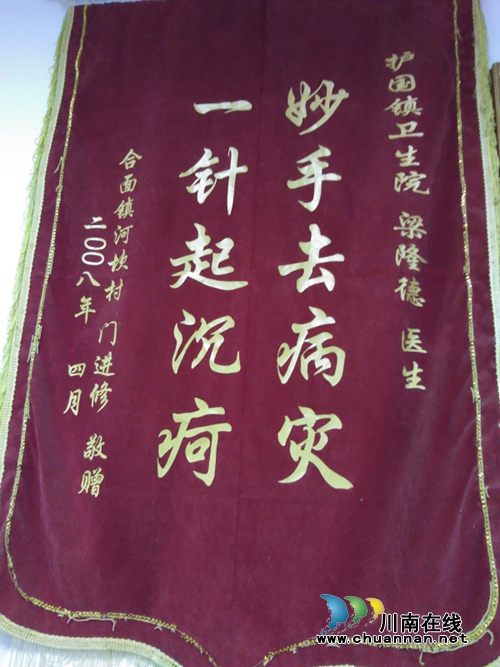 护国镇卫生院 梁隆德 医生
妙手去病灾
一针起沉疴
合面镇河坎村 门进修 敬赠
二00八年 四月
川南在线
www.chuannan.net